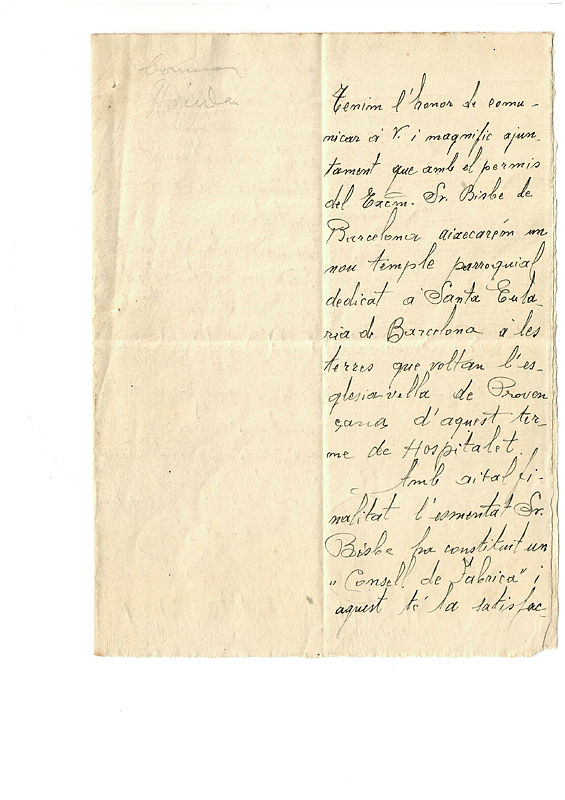 Tenim l'honor de comu-
nicar á V. i magnific ajun-
tament que amb el permis
del Excm. Sr. Bisbe de
Barcelona aixecarém un
nou temple parroquial
dedicat a Santa Eula-
ria de Barcelona á les
terres que voltan l'es-
glesia vella de Proven
çana d'aquest ter-
me de Hospitalet.
Amb aital fi-
nalitat l'esmentat Sr.
Bisbe ha constituit un
"Consell de Fabrica" i
aquest té la satisfac-